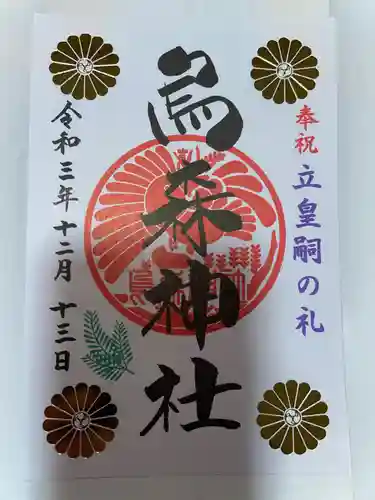 奉祝 立皇嗣の礼
烏森神社
令和三年十二月十三日